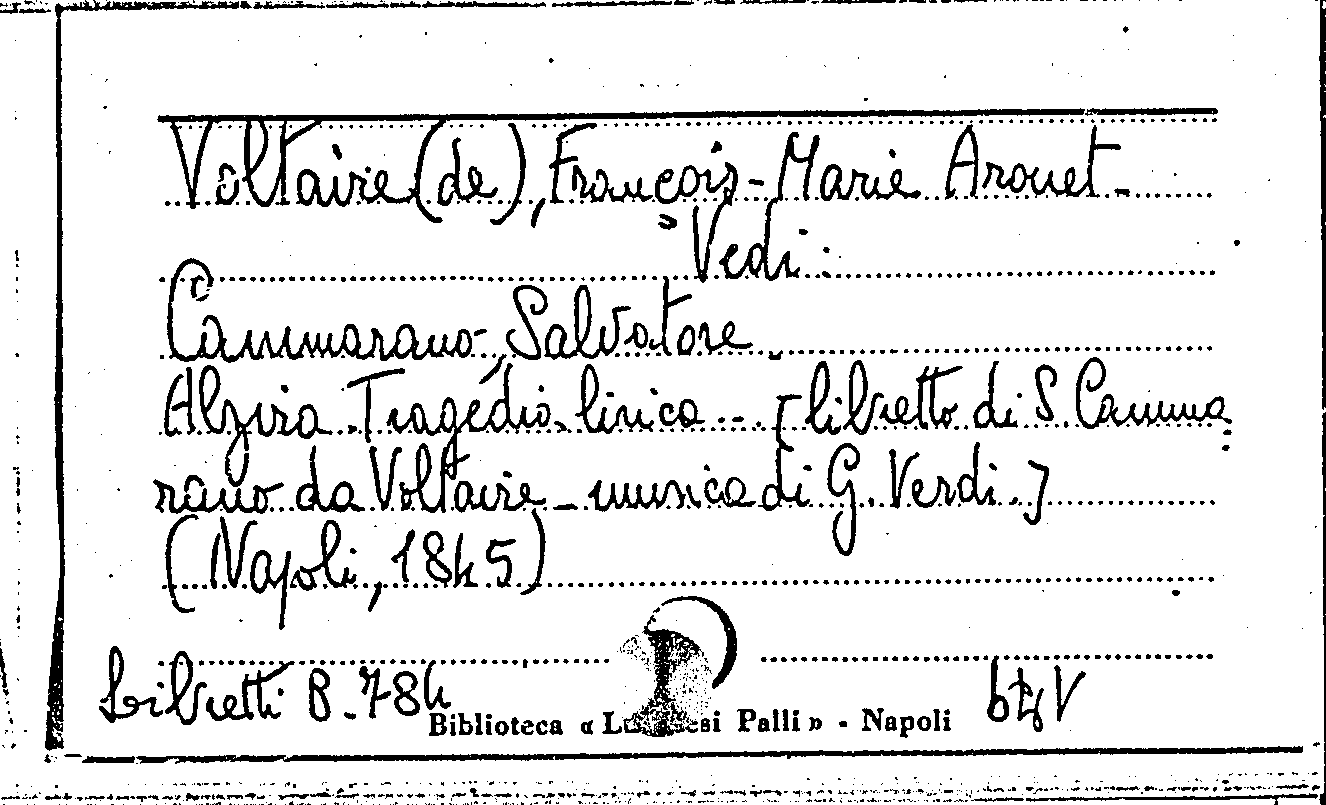 Voltaire (de), François-Marie Arouet-
Vedi:
Cammarano, Salvatore.
Alzira. Tragedia lirica... [libretto di S. Camma
rano da Voltaire - musica di G. Verdi.]
(Napoli, 1845)
Libretti B. 784
Biblioteca « L esi Palli » - Napoli